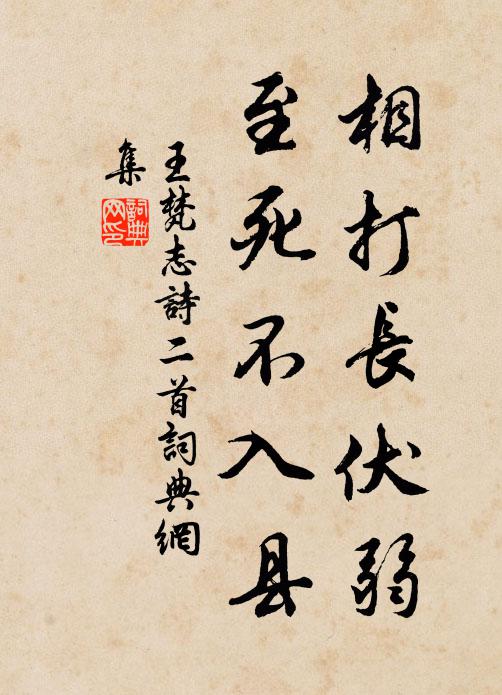 相打長伏弱
至死不入县
王梵志詩二首詞典網
集
詞典
网印